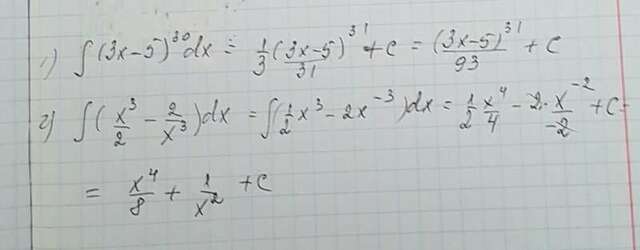 1) ∫(3x-5)^30 dx = 1/3 (3x-5)^31/31 + C = (3x-5)^31/93 + C
2) ∫(x^3/2 - 2/x^3)dx = ∫(1/2 x^3 - 2x^-3)dx = 1/2 x^4/4 - 2·x^-2/-2 + C =
= x^4/8 + 1/x^2 + C